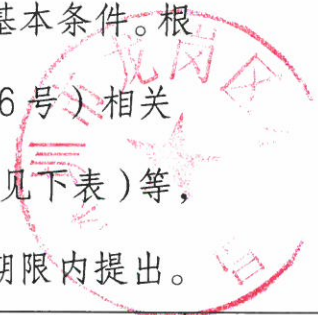 基本条件。根
6号）相关
见下表）等，
期限内提出。
龙岗区